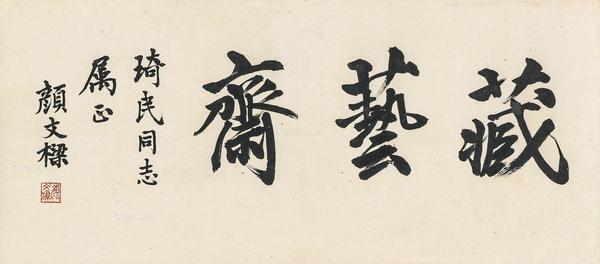 藏藝齋
琦民同志
属正
顔文樑